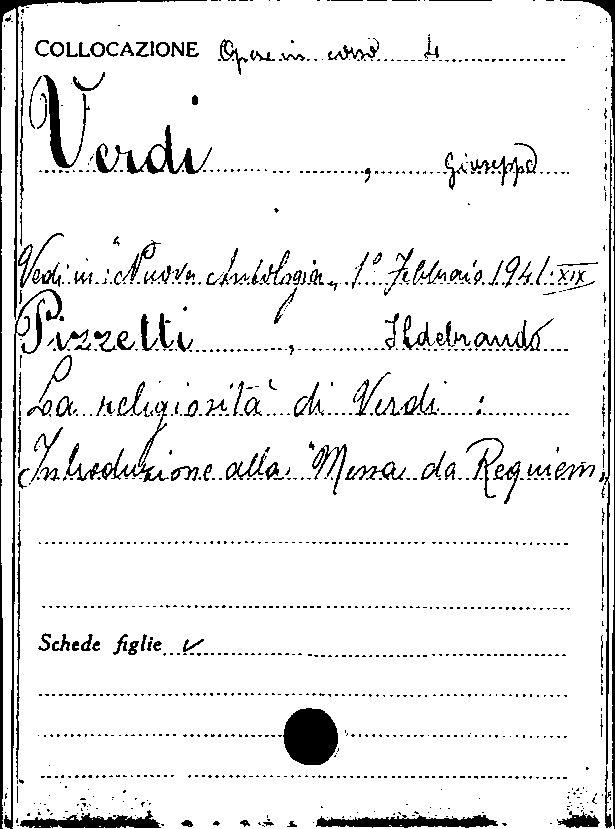 COLLOCAZIONE Opere in corso 4
Verdi , Giuseppe
Vedi in: "Nuova Antologia„ 1° Febbraio 1941·XIX
Pizzetti , Ildebrando
La religiosità di Verdi :
Introduzione alla "Messa da Requiem„
Schede figlie ✓